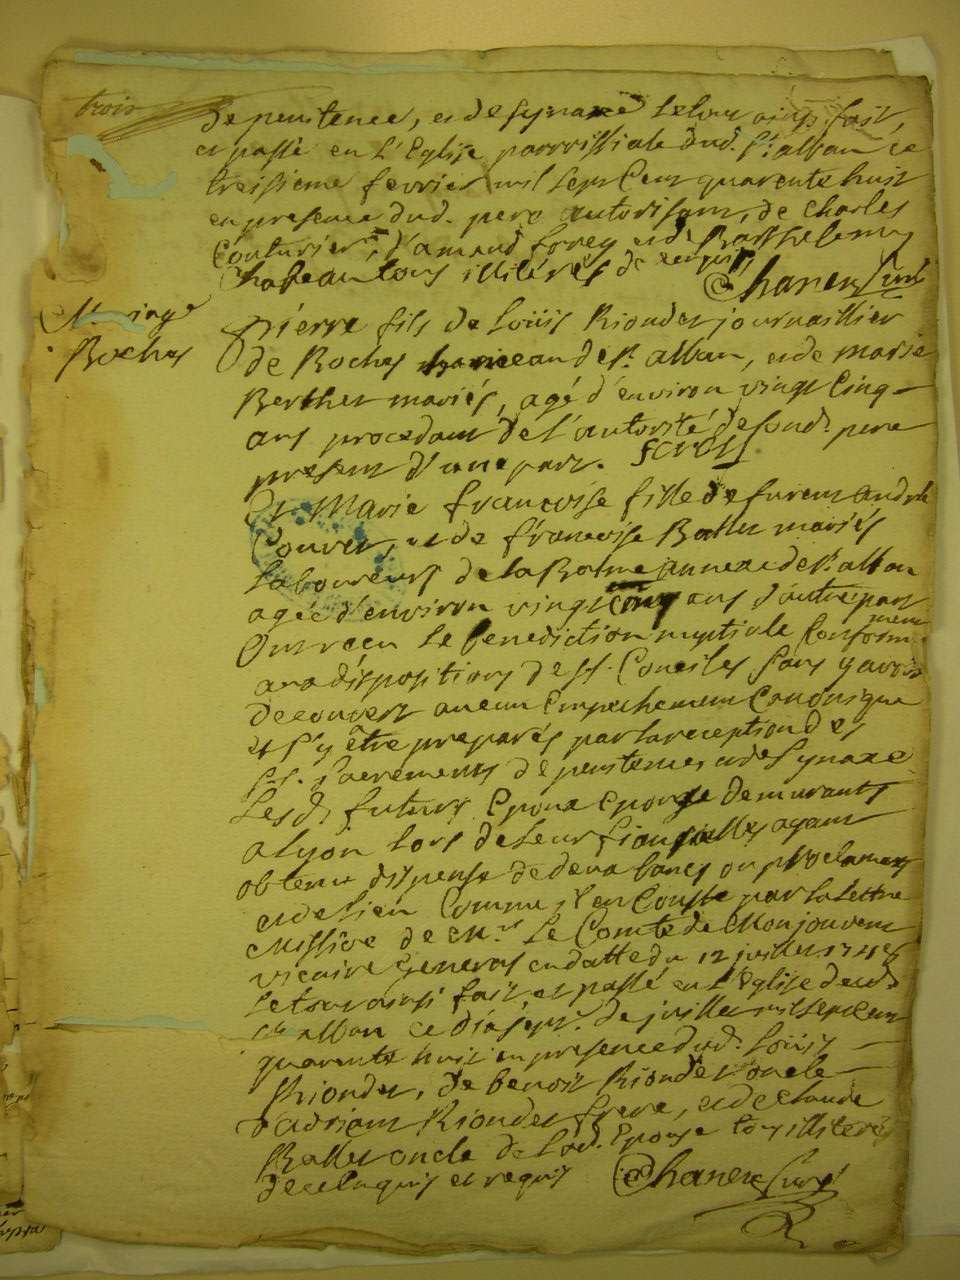 trois
de penitence, et de synaxe le tout ainsi fait,
et passé en l'Eglise parroissiale dud. St. alban ce
treisieme fevrier mil sept Cent quarente huit
en presence dud. pere autorisant, de Charles
Couturier, d'amand forey et de Barthelemy
Chapeau tous illiterés de requis Chanen Curé
Mariage
Roches
Pierre fils de Loüis Riondet journallier
de Roches hameau de St. alban, et de marie
Berthet mariés, agé d'environ vingt Cinq
ans procedant de l'autorité de sond. pere
present d'une part.
Et Marie francoise fille de furent andre
Couvet, et de francoise Ballet mariés
laboureurs de la Balme annexe de St. alban
agée d'environ vingt cinq ans d'autre part
Ont recu le benediction nuptiale Conformement
aux dispositions de SS. Conciles sans y avoir
decouvert aucun Empechement Canonique
et s'y être preparés par la reception des
SS. sacrements de penitence et de Synaxe
Les d. futurs Epoux epouse demurants
a Lyon lors de leur fiansailles ayant
obtenu dispense de deux bancs ou proclamations
et de lieu Comme il en Conste par la lettre
Missive de Mr. Le Comte de Monjouvent
vicaire General en datte du 12 juillet 1748
le tout ainsi fait, et passé en l'Eglise dud.
St. alban ce dix sept. de juillet mil sept Cent
quarente huit en presence dud. Loüis
Riondet, de benoit Riondet oncle
d'adriant Riondet frere, et de Claude
Ballet oncle de lad. Epouse tous illiterés
de ce enquis et requis Chanen Curé